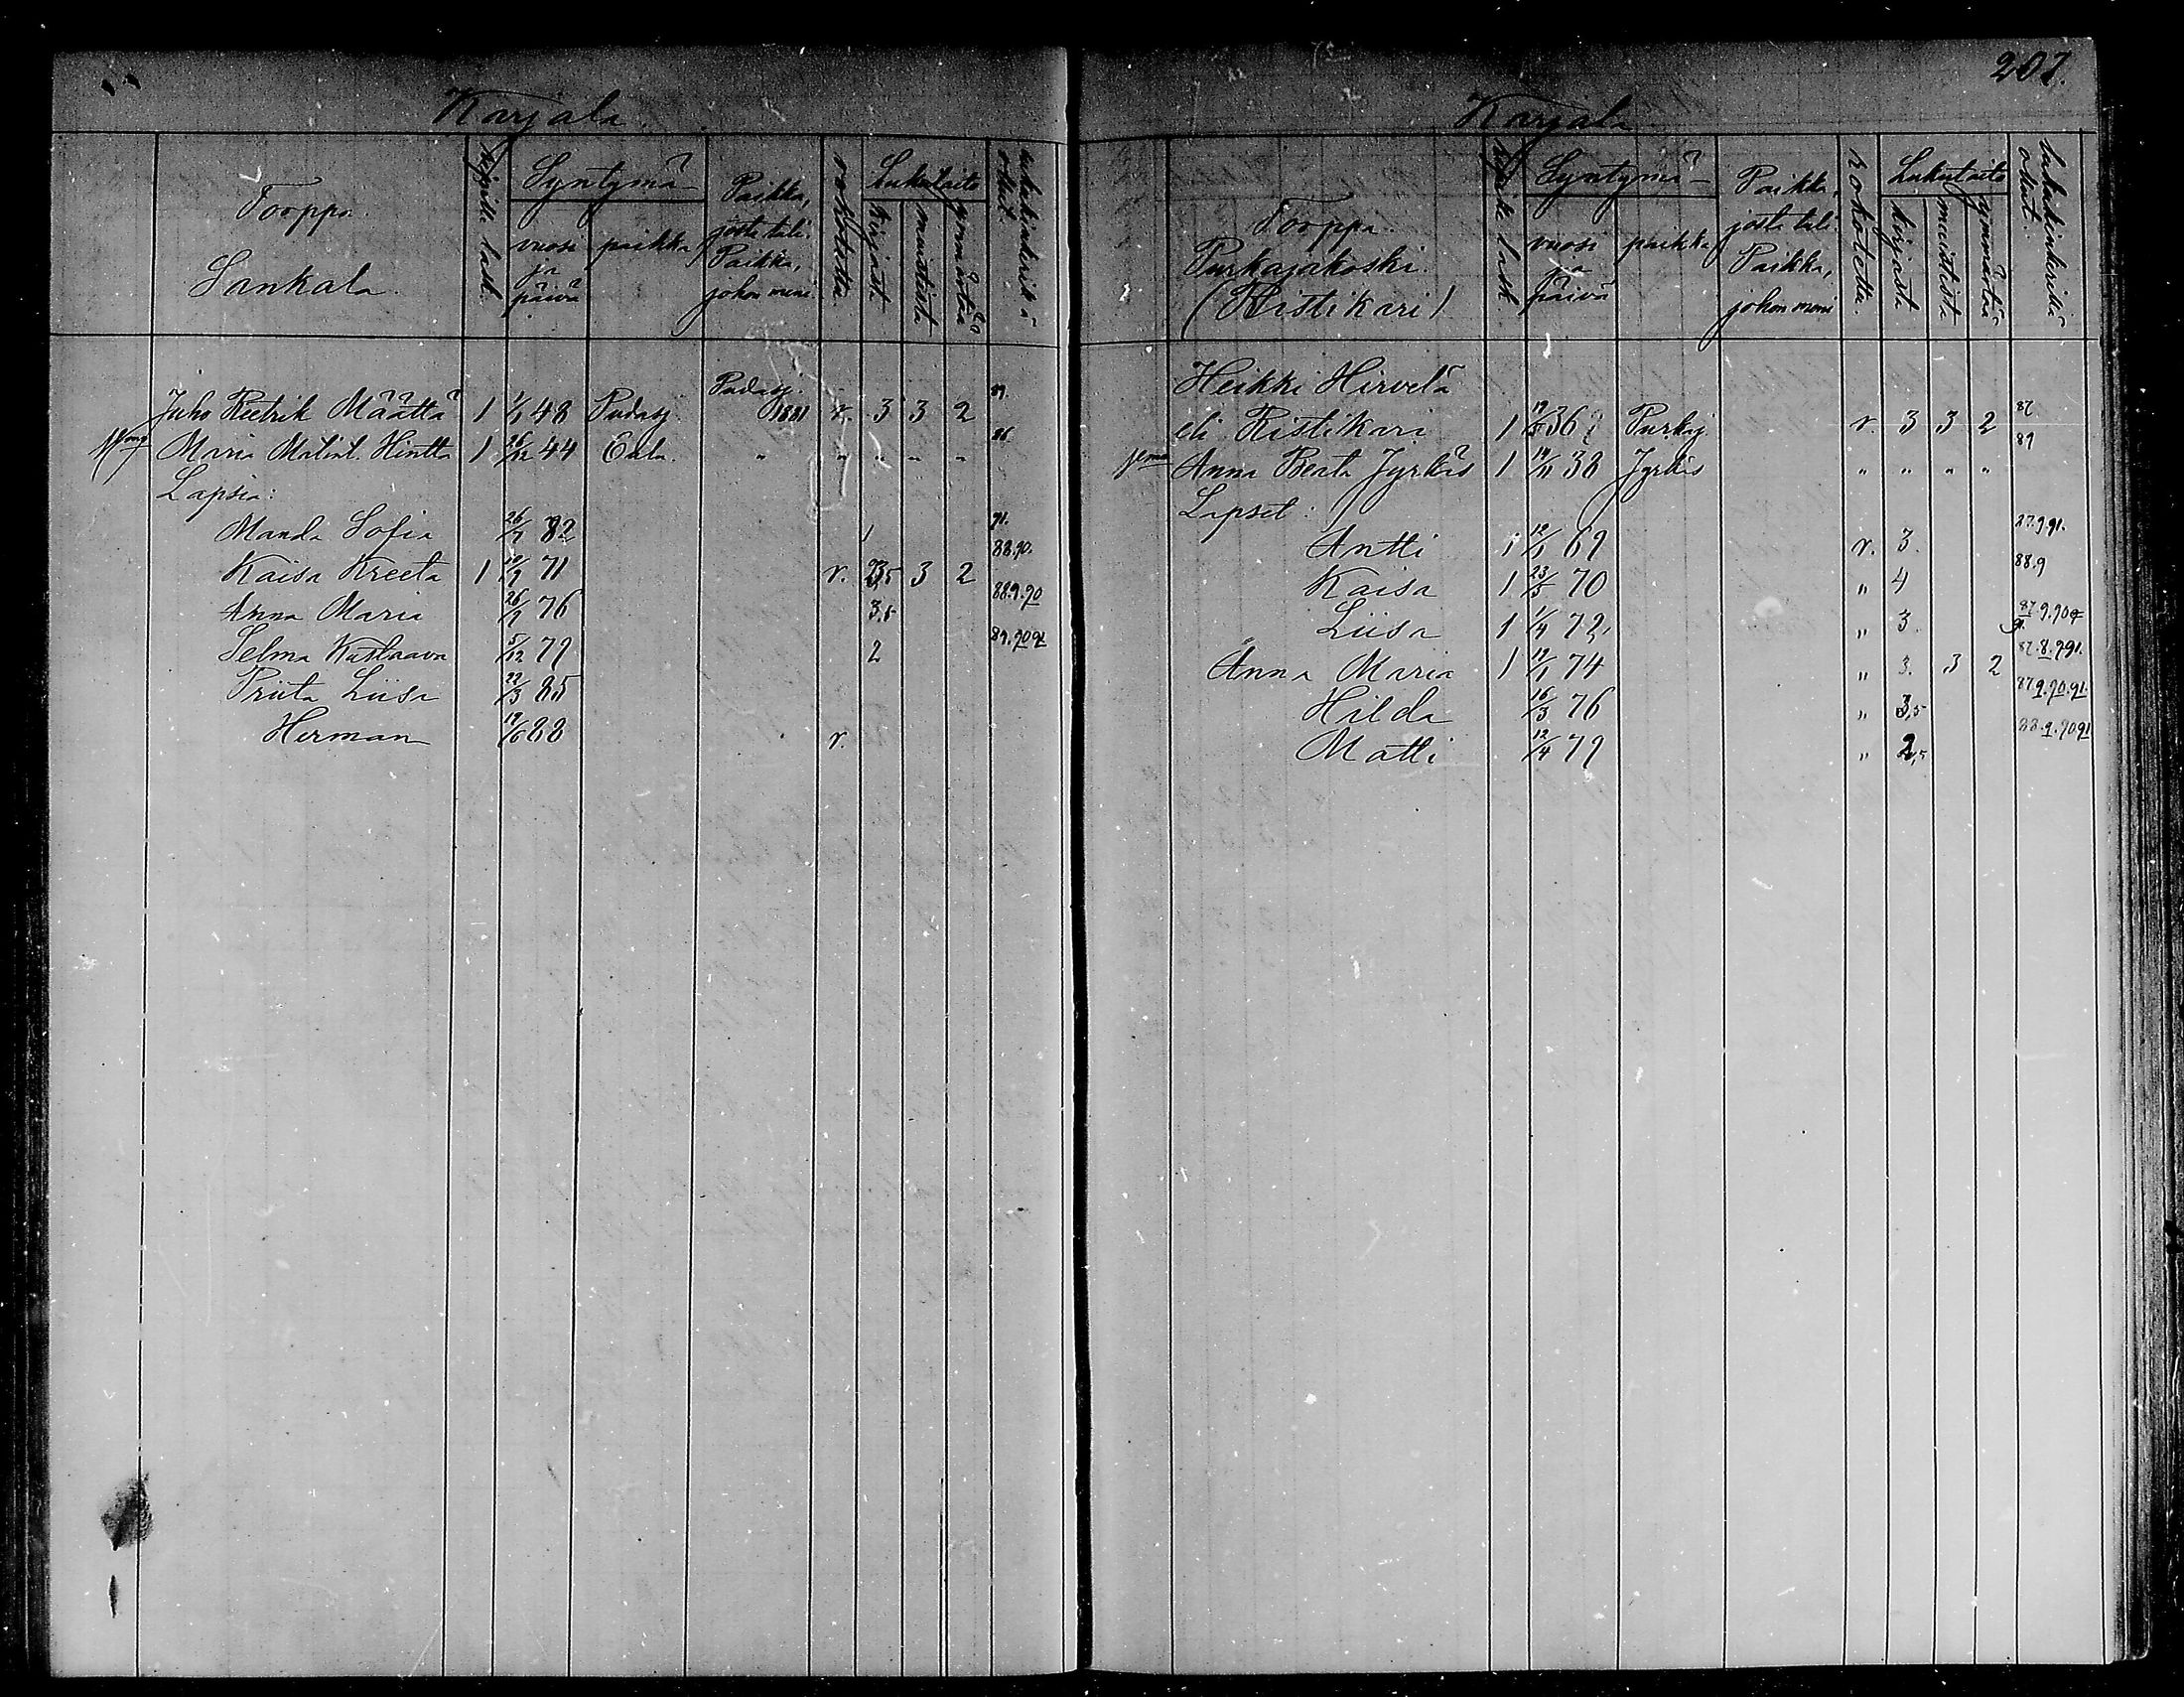 207.
Karjala.
Torppa.
Sankala.
ripille lask.
Syntymä
vuosi ja päivä
paikka
Paikka, josta tuli. Paikka, johon meni
rokotettu
Lukutaito
kirjasta
muistista
ymmärtää
lukukinkerillä ollut.
Pudasj.
Juho Reetrik Määttä 1 1/1 48 Pudasj. 1881 r. 3 3 2 89.
Maria Matint. Hintta 1 26/12 44 Oulu. " " " " " 86.
Lapsia:
Manda Sofia 26/7 82 1 91.
Kaisa Kreeta 1 10/9 71 r. 3,5 3 2 88.90.
Anna Maria 26/9 76 3.5 88.9.90
Selma Kustaava 5/12 79 2 89.90 91
Priita Liisa 22/3 85
Herman 19/6 88 r.
Karjala
Torppa.
Purkajakoski.
(Ristikari)
ripille lask.
Syntymä
vuosi ja päivä
paikka
Paikka, josta tuli. Paikka, johon meni
rokotettu.
Lukutaito
kirjasta
muistista
ymmärtää
lukukinkerillä ollut.
Heikki Hirvelä
eli Ristikari 1 36 Purkaj. r. 3 3 2 87
Anna Beata Jyrkäs 1 19/11 38 Jyrkäs " " " " 89
Lapset:
Antti 1 12/1 69 r. 3. 87.9.91.
Kaisa 1 23/5 70 " 4 88.9
Liisa 1 1/4 72, " 3. 87.9.90
Anna Maria 1 19/1 74 " 3. 3 2 87.8.9.91.
Hilda 16/3 76 " 3,5 87.9.90.91.
Matti 12/4 79 " 2,5 88.9.90 91